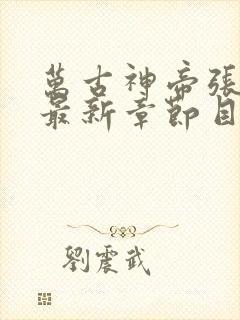 萬古神帝張
最新章節目
劉震武